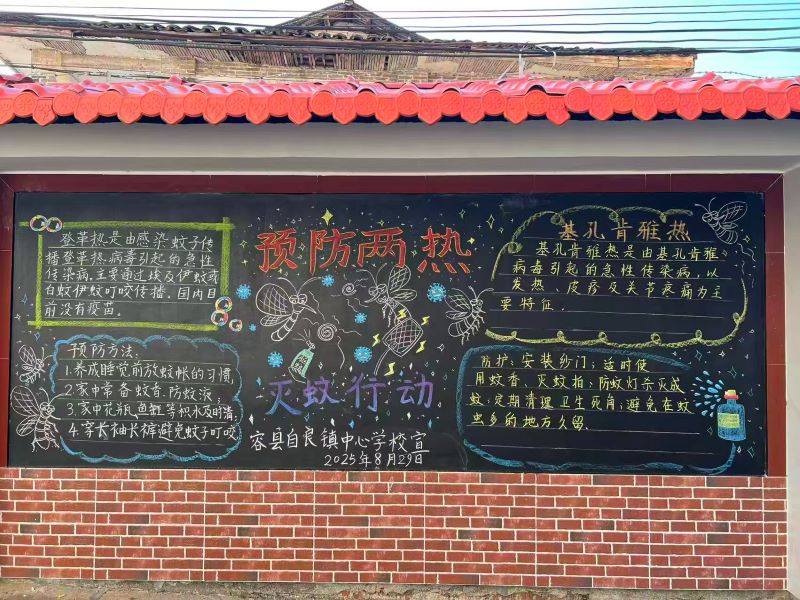 登革热是由感染蚊子传
播登革热病毒引起的急性
传染病.主要通过埃及伊蚊或
白蚊伊蚊叮咬传播.国内目
前没有疫苗.
预防方法:
1.养成睡觉前放蚊帐的习惯
2.家中常备蚊香.防蚊液;
3.家中花瓶.鱼缸等积水及时清;
4.穿长袖长裤避免蚊子叮咬
预防两热
灭蚊行动
容县自良镇中心学校宣
2025年8月29日
基孔肯雅热
基孔肯雅热是由基孔肯雅
病毒引起的急性传染病,以
发热、皮疹及关节疼痛为主
要特征.
防护:安装纱门;适时使
用蚊香、灭蚊拍;防蚊灯杀灭成
蚊;定期清理卫生死角;避免在蚊
虫多的地方久留.